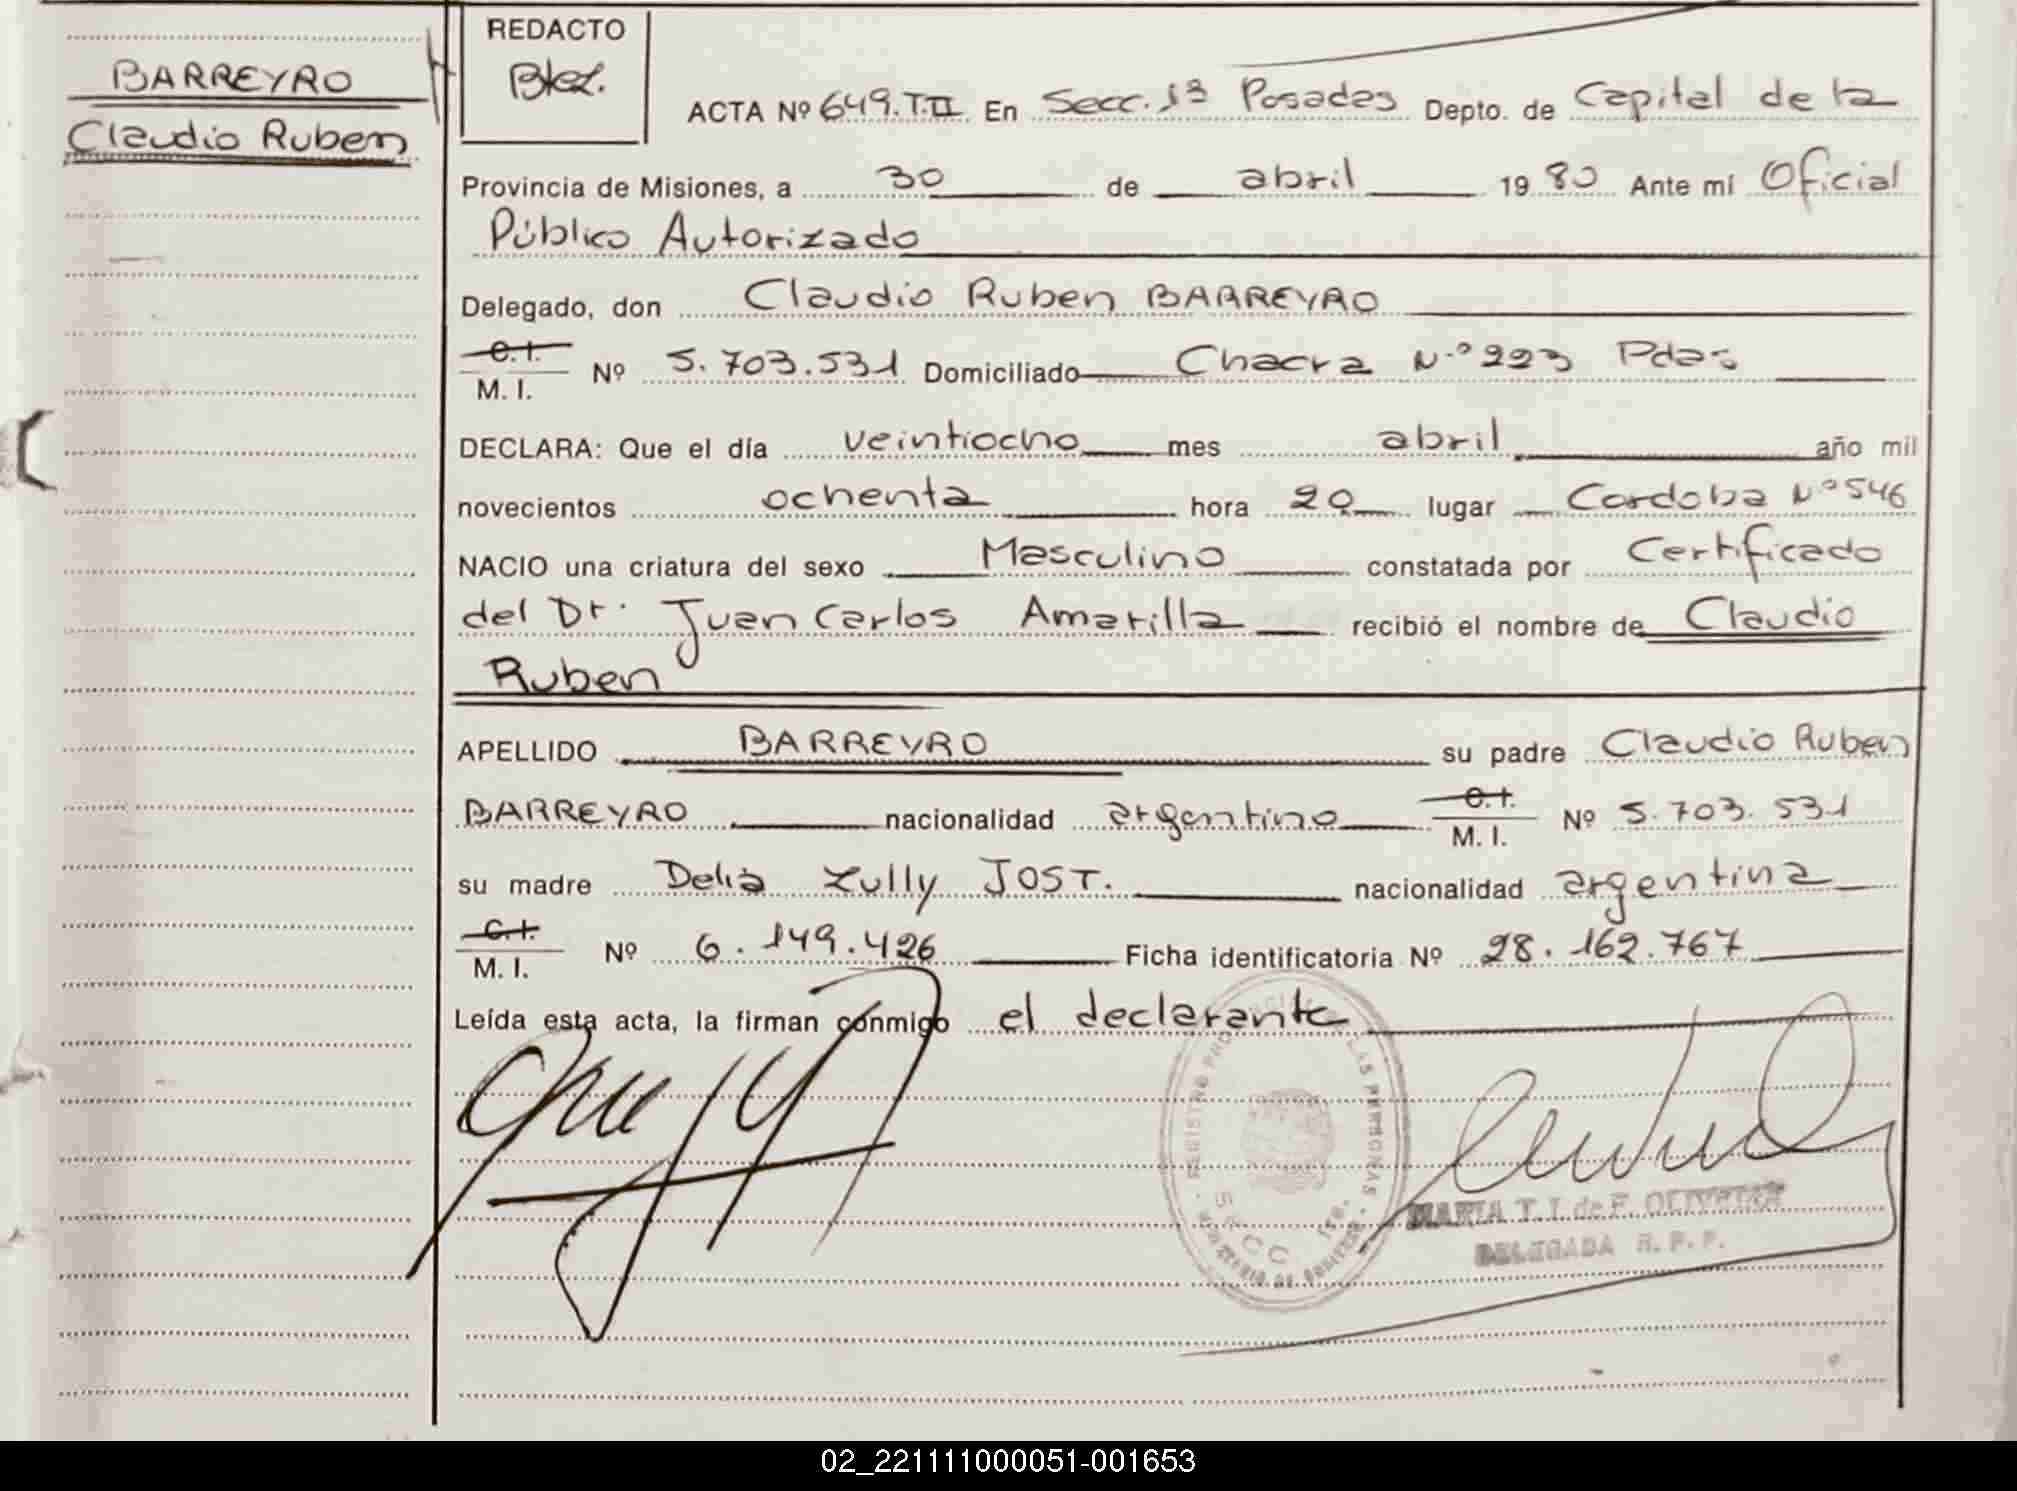 BARREYRO
Claudio Ruben
REDACTO
ACTA Nº 649.T.II En Secc. 1ª Posadas Depto. de Capital de la
Provincia de Misiones, a 30 de abril 19 80 Ante mí Oficial
Público Autorizado
Delegado, don Claudio Ruben BARREYRO
C. I. M. I. Nº 5.703.531 Domiciliado Chacra N.º 223 Pdas
DECLARA: Que el día veintiocho mes abril año mil
novecientos ochenta hora 20 lugar Cordoba Nº 546
NACIO una criatura del sexo Masculino constatada por Certificado
del Dr. Juan Carlos Amarilla recibió el nombre de Claudio
Ruben
APELLIDO BARREYRO su padre Claudio Ruben
BARREYRO nacionalidad argentino C. I. M. I. Nº 5.703.531
su madre Delia Zully JOST. nacionalidad argentina
C. I. M. I. Nº 6.149.426 Ficha identificatoria Nº 28.162.767
Leída esta acta, la firman conmigo el declarante
REGISTRO PROVINCIAL DE LAS PERSONAS
SECC 1ra.
MARIA T. I. de F. OLIVEIRA
DELEGADA R. P. P.
02_221111000051-001653